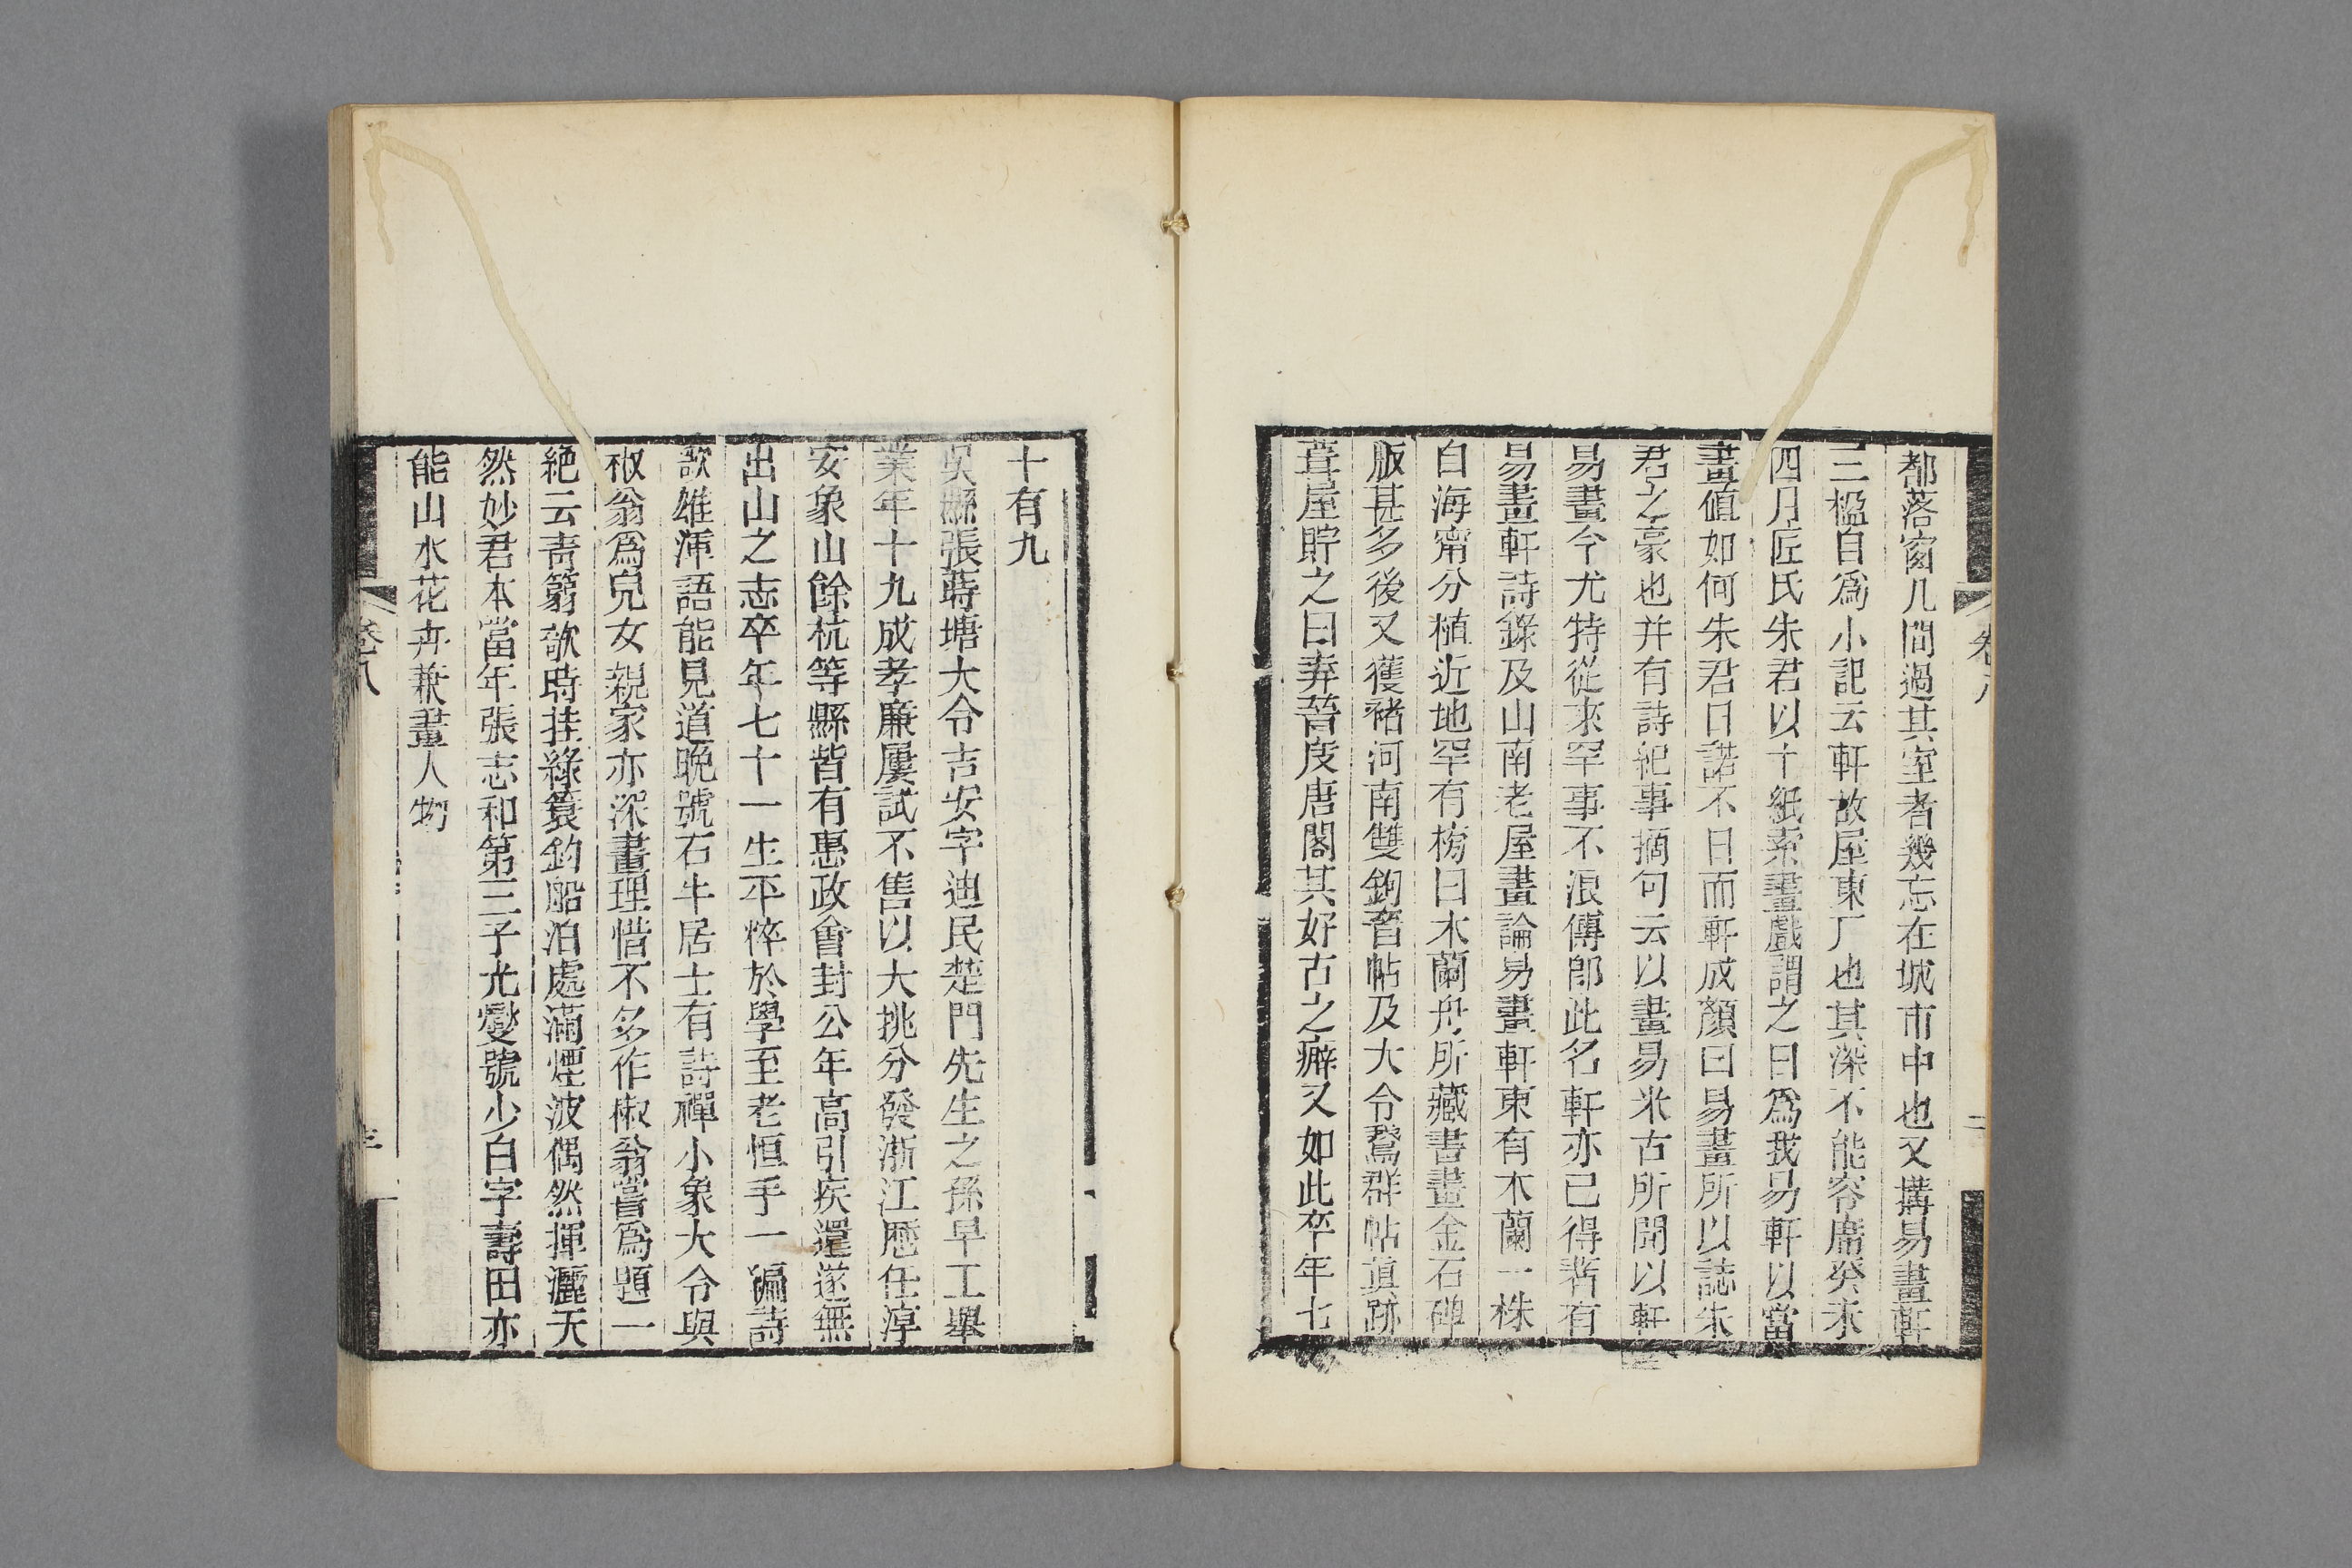 都落窗几間過其室者幾忘在城市中也又搆易畫軒
三楹自爲小記云軒故屋東厂也其深不能容席癸未
四月匠氏朱君以十紙索畫戲謂之曰爲我易軒以當
畫值如何朱君曰諾不日而軒成顏曰易畫所以誌朱
君之豪也并有詩紀事摘句云以畫易米古所聞以軒
易畫今尤特從來罕事不浪傳卽此名軒亦已得著有
易畫軒詩錄及山南老屋畫論易畫軒東有木蘭一株
白海甯分植近地罕有榜曰木蘭舟所藏書畫金石碑
版甚多後又獲褚河南雙鉤晉帖及大令鵞群帖眞跡
葺屋貯之曰弆晉庋唐閣其好古之癖又如此卒年七
十有九
吳縣張蒔塘大令吉安字迪民楚門先生之孫早工舉
業年十九成孝廉屢試不售以大挑分發浙江歷任淳
安象山餘杭等縣皆有惠政會封公年高引疾還遂無
出山之志卒年七十一生平悴於學至老恒手一編詩
歌雄渾語能見道晚號石牛居士有詩禪小象大令與
椒翁爲兒女親家亦深畫理惜不多作椒翁嘗爲題一
絕云靑篛欹時挂綠簑釣船泊處滿煙波偶然揮灑天
然妙君本當年張志和第三子光燮號少白字壽田亦
能山水花卉兼畫人物
卷八